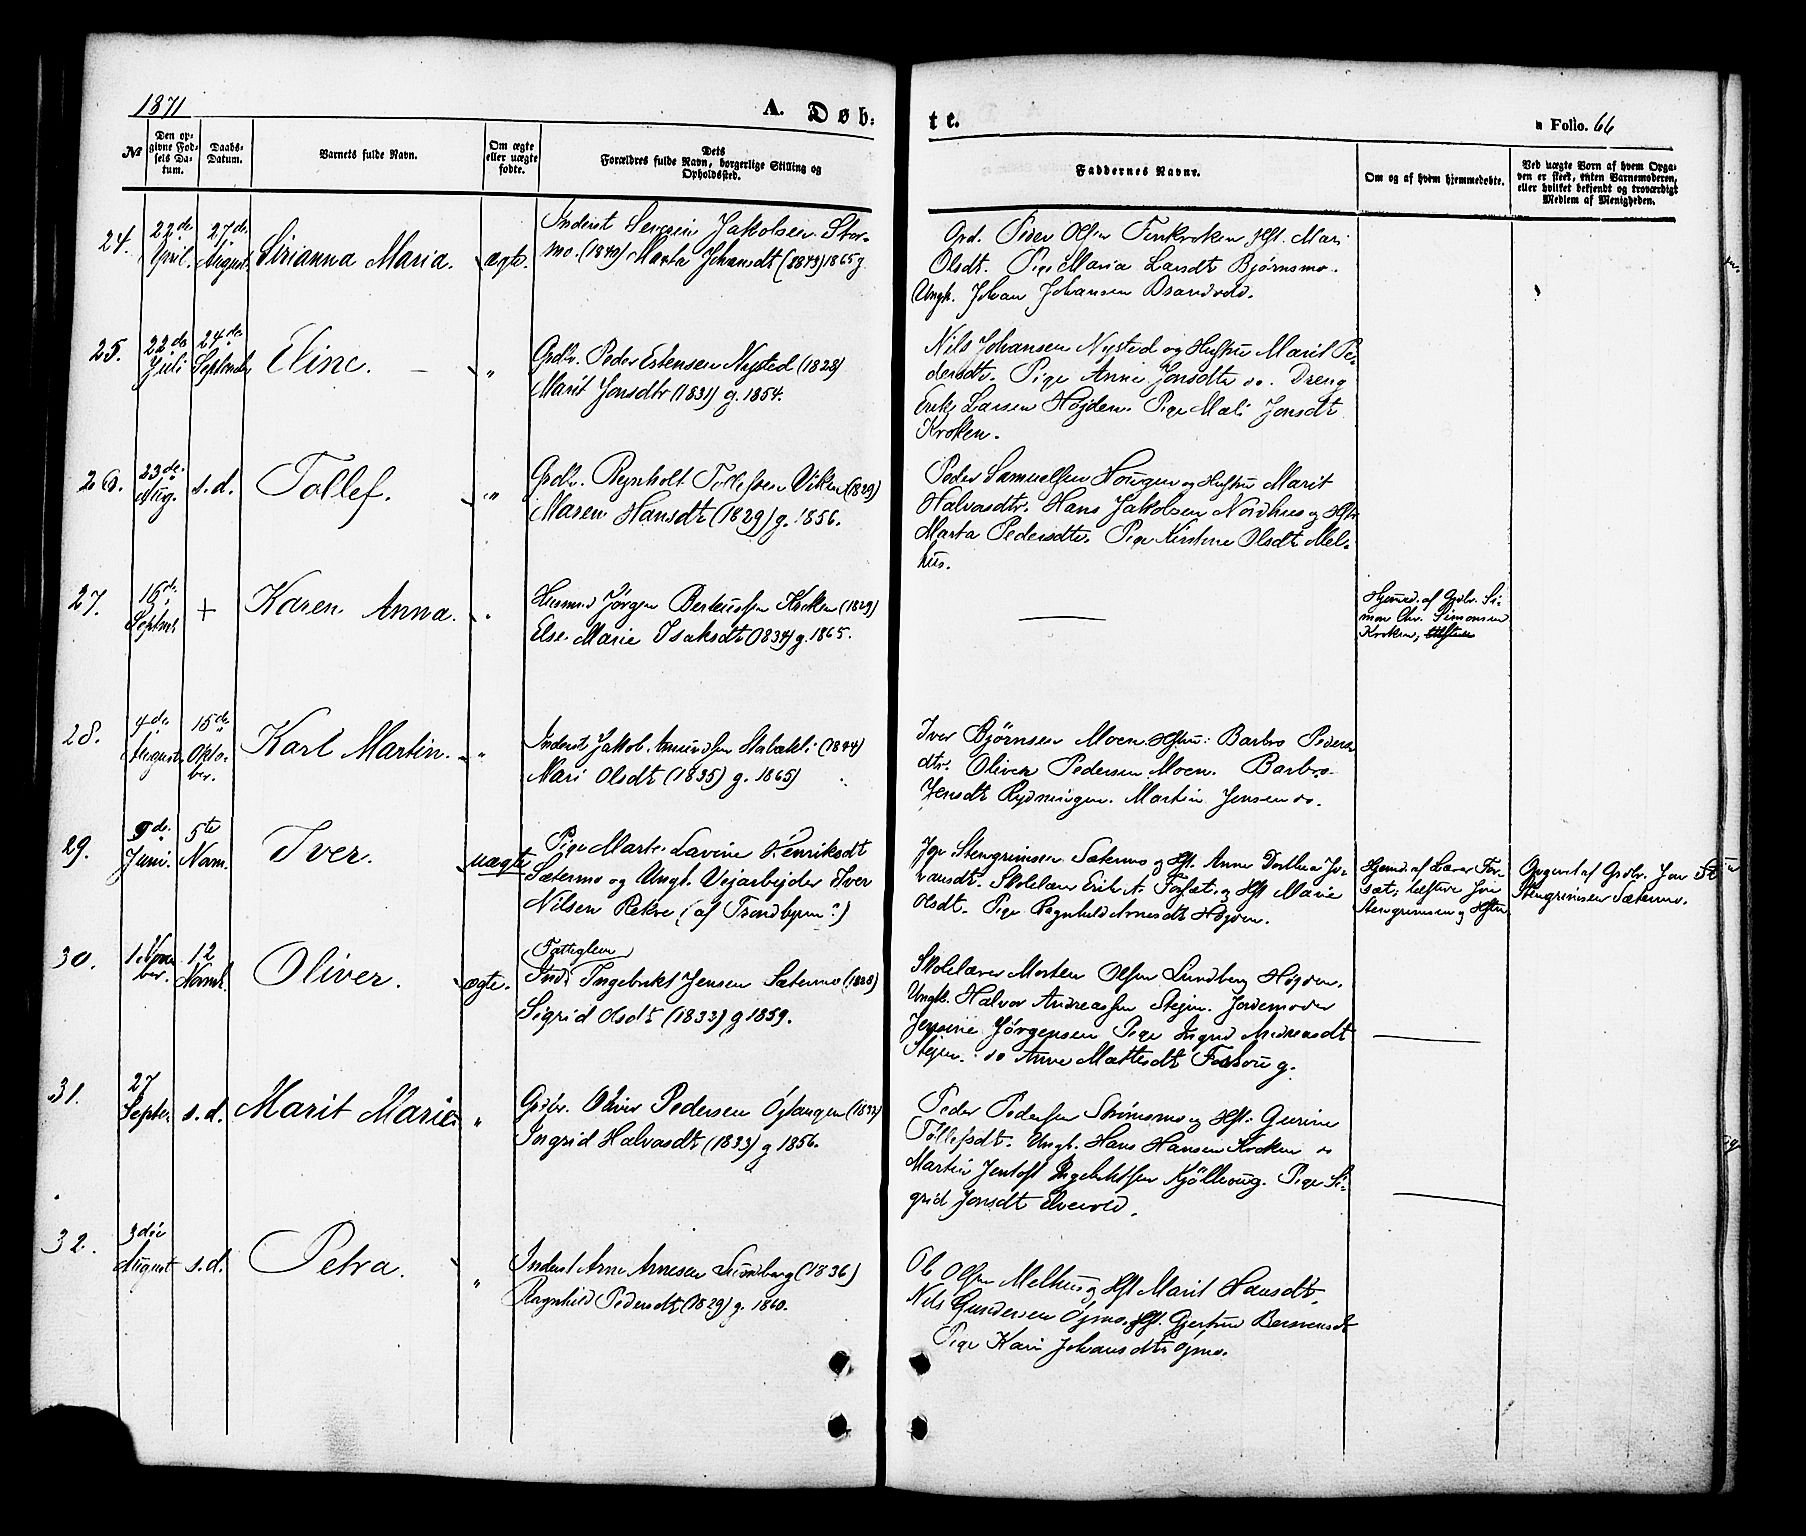 1871
A. Døb-
te.
Folio. 66
No
Den op-
givne Fød-
sels Da-
tum.
Daabs-
Datum.
Barnets fulde Navn.
Om ægte
eller uægte
fødte.
Dets
Forældres fulde Navn, borgerlige Stilling og
Opholdssted.
Faddernes Navne.
Om og af hvem hjemmedøbt.
Ved uægte Børn af hvem Opga-
ven er skeet, enten Barnemoderen,
eller hvilket bekjendt og troværdigt
Medlem af Menigheden.
24.
22de
April.
27de
August.
Sirianna Maria.
ægte.
Inderst Severin Jakobsen Stor-
mo. (1840) Marta Johansdt (1843) 1865 g.
Grd. Peder Olsen Finkroken Hst. Mari
Olsdt. Pige Maria Larsdt Bjørnsmo.
Ungk. Johan Johansen
25.
22de
Juli
24de
September
Eline.
"
Grdbr. Peder Estensen Nysted (1828)
Marit Jonsdtr (1831) g. 1854.
Nils Johansen Nysted og Hustru Marit Pe-
dersdt. Pige Anne Jonsdtr do. Dreng
Erik Larsen Højden. Pige Mali Jonsdt
Kroken.
26.
23de
Aug.
s.d.
Tollef.
"
Grdbr. Reynholt Tollefsen Viken (1829)
Maren Hansdt (1829) g. 1856.
Peder Samuelsen Hougen og Hustru Marit
Halvarsdtr. Hans Jakobsen Nordhus og Hstr
Marta Pedersdtr. Pige Kirstine Olsdt Mel-
hus.
27.
16de
Septmbr
+
Karen Anna.
"
Husmd Jørgen Berteussen Kroken (1829)
Else Marie Isaksdt (1834) g. 1865.
Hjemd. af Grdbr. Si-
mon Chr. Simonsen
Kroken,
28.
4de
August
15de
Okto-
ber.
Karl Martin.
"
Inderst Jakob Amundsen Stabækli (1844)
Mari Olsdt (1835) g. 1865)
Iver Bjørnsen Moen Hstru: Barbro Peders
dtr. Oliver Pedersen Moen. Barbro
Jensdt Rydningen. Martin Jensen do.
29.
9de
Juni.
5te
Novm.
Iver.
uægte
Pige Marte Lavine Henriksdt
Sætermo og Ungk. Vejarbejder Iver
Nilsen Rekve (af Trondhjem?)
Jon Stengrimsen Sætermo og Hst. Anne Dorthea Jo-
hansdt. Skolelærer Erik A. Forset og Hst Marie
Olsdt. Pige Ragnhild Arnesdt Højden.
Hjemd. af Lærer For-
sæt; tilstede Jon
Stengrimsen og Hstru
Opgivet af Grdbr. Jon
Stengrimsen Sætermo.
30.
1. Novem-
ber.
12
Novmb.
Oliver.
ægte.
Fattiglem
Ind. Ingebrikt Jensen Sætermo (1828)
Sigrid Olsdt (1833) g 1859.
Skolelærer Morten Olsen Lundberg Højden.
Ungk. Halvor Andreassen Stejen. Jordemoder
Jensine Jørgensen Pige Ingrid Andreasdt
Stejen. do Anne Mattesdt
31.
27
Septbr.
s.d.
Marit Marie
"
Grdbr. Oliver Pedersen Øglangen (1832)
Ingrid Halvarsdt (1833) g 1856.
Peder Pedersen Strømsmo og Hst. Gurine
Tollefsdt. Ungk. Hans Hansen Kroken do
Martin Jentoft Ingebriktsen Kjølhoug. Pige Si-
grid Jonsdt Elvevold.
32.
3die
August
s.d.
Petra.
"
Inderst Arne Arnesen Lundberg (1836)
Ragnhild Pedersdt (1829) g. 1860.
Ole Olsen Melhus og Hst Marit Hansdt.
Nils Gundersen Øjmo. og Hst. Gjertrud Berntensdt
Pige Kari Johansdtr Øjmo.